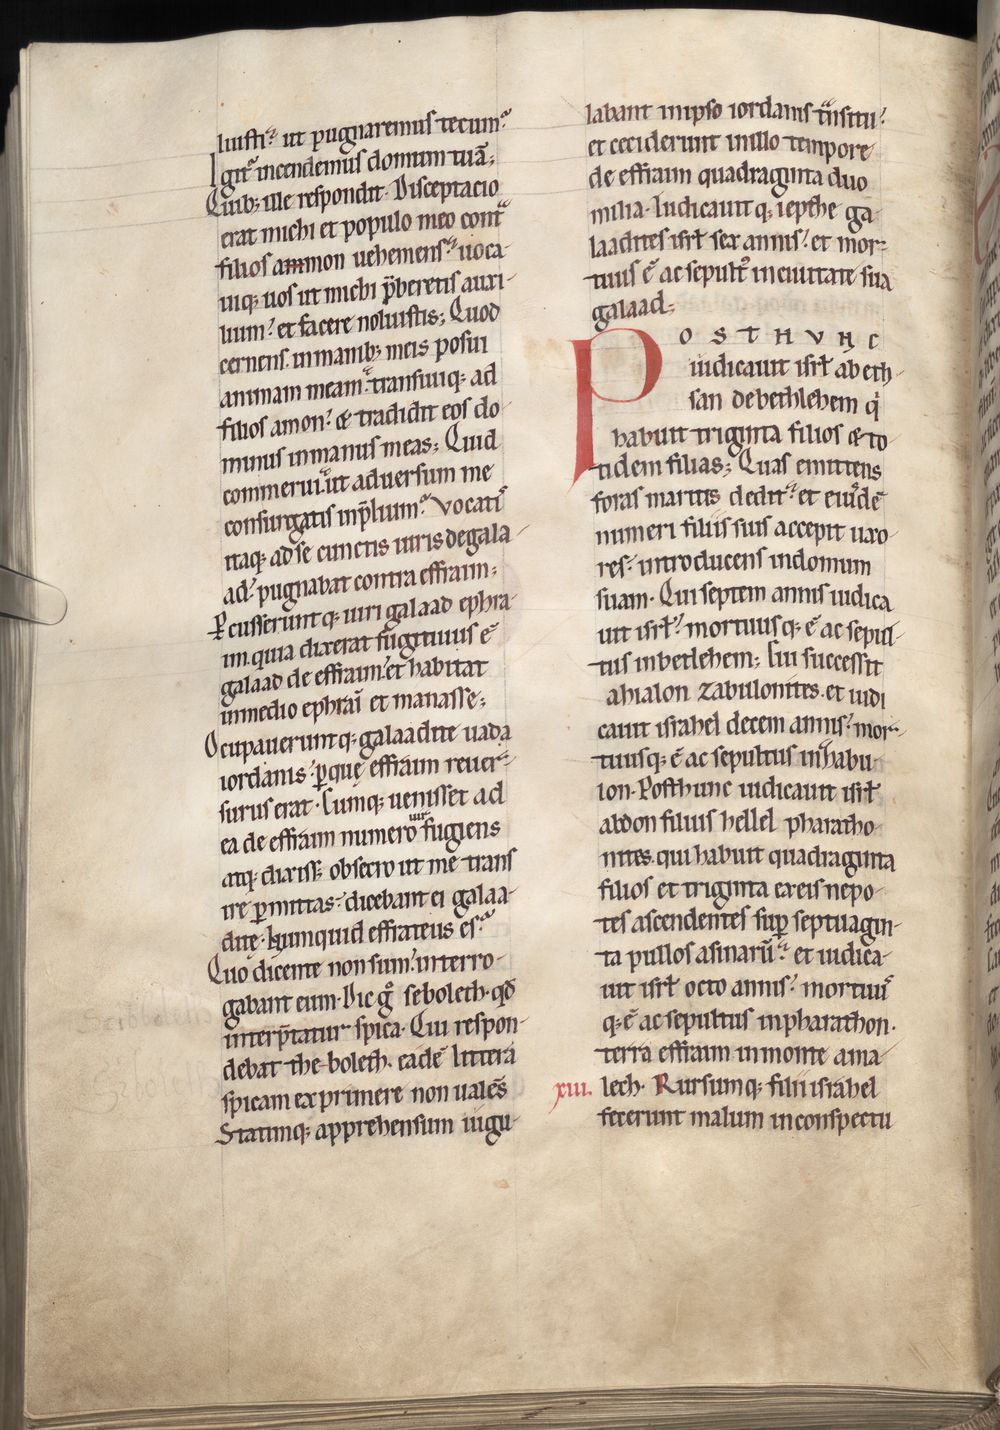 luisti. ut pugnaremus tecum?
Igit᷑ incendemus domum tuā;
Quib; ille respondit. Disceptacio
erat michi et populo meo contᷓ
filios ammon uehemens. uoca-
uiq; uos ut michi p̄beretis auxi-
lium. et facere noluistis; Quod
cernens. in manib; meis posui
animam meam. transiuiq; ad
filios amon. & tradidit eos do-
minus in manus meas; Quid
commerui. ut aduersum me
consurgatis in p̄lium? Vocatis
itaq; ad se cunctis uiris de gala-
ad. pugnabat contra effraim;
P̱cusseruntq; uiri galaad ephra-
im. quia dixerat fugitiuus ē
galaad de effraim. et habitat
in medio ephraī et manasse;
Occupaueruntq; galaadite uada
iordanis. ꝑ que effraim reuer-
surus erat. Cumq; uenisset ad
ea de effraim numero fugiens
atq; dixiss&. obsecro ut me trans
ire ꝑmittas. dicebant ei galaa-
dite. Numquid effrateus es?
Quo dicente non sum. interro-
gabant eum. Dic g̊ seboleth. qd̄
interp̄tatur spica. Qui respon-
debat the-boleth. eadē littera
spicam exprimere non ualēs
Statimq; apprehensum iugu-
Scibboleth
Seboleth
labant in ipso iordanis t᷑nsitu.
et ceciderunt in illo tempore
de effraim quadraginta duo
milia. Iudicauit q; iepthe ga-
laadites isrł sex annis. et mor-
tuus ē ac sepult᷒ in ciuitate sua
galaad;
POST HVNC
iudicauit isrł abeth-
san de bethlehem qi
habuit triginta filios & to-
tidem filias; Quas emittens
foras maritis dedit. et eiusdē
numeri filiis suis accepit uxo-
res. introducens in domum
suam. Qui septem annis iudica
uit isrł. mortuusq; ē ac sepul-
tus in betlehem; Cui successit
ahialon zabulonites. et iudi
cauit israhel decem annis. mor-
tuusq; ē ac sepultus in zabu-
lon. Post hunc iudicauit isrł
abdon filius hellel pharatho-
nites. qui habuit quadraginta
filios et triginta ex eis nepo-
tes ascendentes suꝑ septuagin-
ta pullos asinarū. et iudica-
uit isrł octo annis. mortuus
q; ē ac sepultus in pharathon.
terra effraim in monte ama-
xiii. lech. Rursumq; filii israhel
fecerunt malum in conspectu